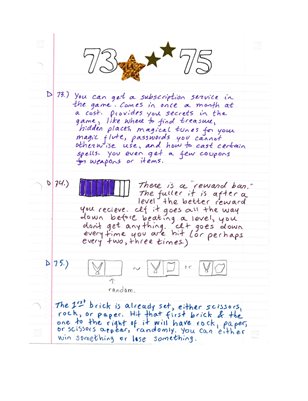 73 75
73.) You can get a subscription service in
the game. Comes in once a month at
a cost. Provides you secrets in the
game, like where to find treasure,
hidden places, magical tunes for your
magic flute, passwords you cannot
otherwise use, and how to cast certain
spells. You even get a few coupons
for weapons or items.
74.) There is a "reward bar."
The fuller it is after a
level the better reward
you recieve. If it goes all the way
down before beating a level, you
don't get anything. It goes down
every time you are hit (or perhaps
every two, three times.)
75.)
random.
The 1st brick is already set, either scissors,
rock, or paper. Hit that first brick & the
one to the right of it will have rock, paper,
or scissors appear, randomly. You can either
win something or lose something.